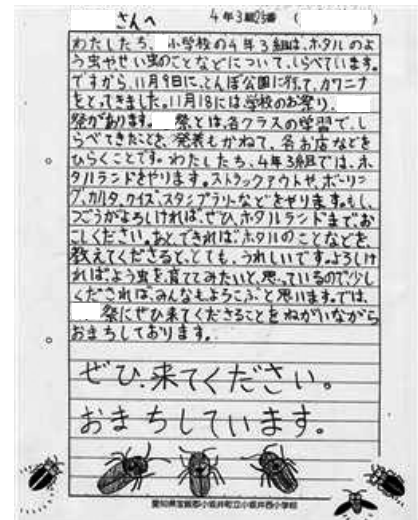 さんへ 4年3組25番 ( )
わたしたち、 小学校の4年3組は、ホタルのよ
う虫やせい虫のことなどについて、しらべています。
ですから、11月9日に、とんぼ公園に行って、カワニナ
をとってきました。11月18には学校のお祭り、
祭があります。 祭とは、各クラスの学習で、し
らべてきたことを、発表もかねて、各お店などを
ひらくことです。わたしたち、4年3組では、ホ
タルランドをやります。ストラックアウトや、ボーリン
グ、カルタ、クイズ、スタンプラリーなどをやります。もし、
つごうがよろしければ、ぜひ、ホタルランドまでお
こしください。あと、できれば、ホタルのことなどを、
教えてくださると、とても、うれしいです。よろしけ
ればよう虫を育ててみたいと、思っているので少し
くだされば、みんなもよろこぶと思います。では、
祭にぜひ来てくださることをねがいながら
おまちしております。
ぜひ、来てください。
おまちしています。
愛知県宝飯郡小坂井町立小坂井西小学校